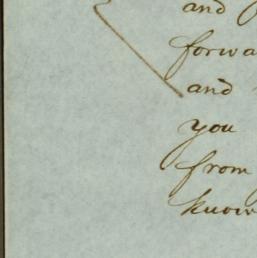 and
forwa
and
you
from
know